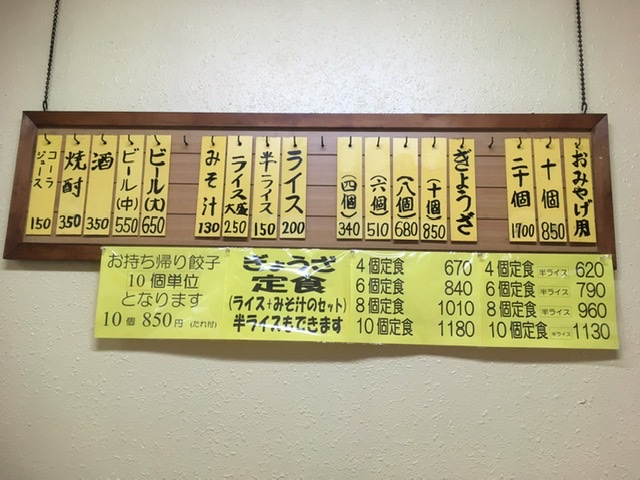 おみやげ用
十個 850
二十個 1700
ぎょうざ
(十個) 850
(八個) 680
(六個) 510
(四個) 340
ライス 200
半ライス 150
ライス大盛 250
みそ汁 130
ビール(大) 650
ビール(中) 550
酒 350
焼酎 350
コーラ
ジュース 150
お持ち帰り餃子
10個単位
となります
10個 850円(たれ付)
ぎょうざ
定食
(ライス+みそ汁のセット)
半ライスもできます
4個定食 670
6個定食 840
8個定食 1010
10個定食 1180
4個定食 半ライス 620
6個定食 半ライス 790
8個定食 半ライス 960
10個定食 半ライス 1130